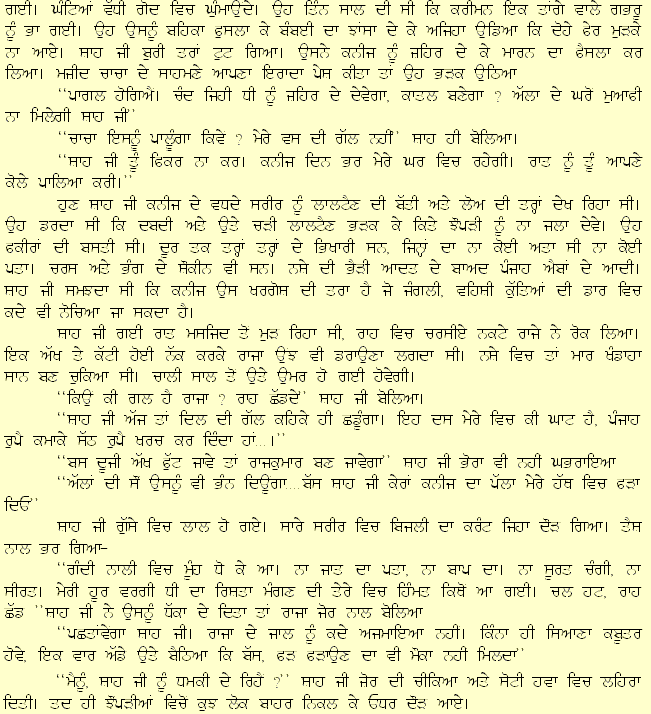 ਗਈ। ਘੰਟਿਆਂ ਵੱਧੀ ਗੋਦ ਵਿਚ ਘੁੰਮਾਉਂਦੇ। ਉਹ ਤਿੰਨ ਸਾਲ ਦੀ ਸੀ ਕਿ ਕਰੀਮਨ ਇਕ ਤਾਂਗੇ ਵਾਲੇ ਗਭਰੂ
ਨੂੰ ਭਾ ਗਈ। ਉਹ ਉਸਨੂੰ ਬਹਿਕਾ ਫੁਸਲਾ ਕੇ ਬੰਬਈ ਦਾ ਝਾਂਸਾ ਦੇ ਕੇ ਅਜਿਹਾ ਉਡਿਆ ਕਿ ਦੋਹੇ ਫੇਰ ਮੁੜਕੇ
ਨਾ ਆਏ। ਸਾਹ ਜੀ ਬੁਰੀ ਤਰਾਂ ਟੁਟ ਗਿਆ। ਉਸਨੇ ਕਨੀਜ਼ ਨੂੰ ਜ਼ਹਿਰ ਦੇ ਕੇ ਮਾਰਨ ਦਾ ਫੈਸਲਾ ਕਰ
ਲਿਆ। ਮਜ਼ੀਦ ਚਾਚਾ ਦੇ ਸਾਹਮਣੇ ਆਪਣਾ ਇਰਾਦਾ ਪੇਸ਼ ਕੀਤਾ ਤਾਂ ਉਹ ਭੜਕ ਉਠਿਆ
‘‘ਪਾਗਲ ਹੋਗਿਐ। ਚੰਦ ਜਿਹੀ ਧੀ ਨੂੰ ਜ਼ਹਿਰ ਦੇ ਦੇਵੇਗਾ, ਕਾਤਲ ਬਣੇਗਾ ? ਅੱਲਾ ਦੇ ਘਰੋਂ ਮੁਆਫੀ
ਨਾ ਮਿਲੇਗੀ ਸਾਹ ਜੀ’’
‘‘ਚਾਚਾ ਇਸਨੂੰ ਪਾਲੂੰਗਾ ਕਿਵੇ ? ਮੇਰੇ ਵਸ ਦੀ ਗੱਲ ਨਹੀਂ’’ ਸਾਹ ਹੀ ਬੋਲਿਆ।
‘‘ਸਾਹ ਜੀ ਤੂੰ ਫਿਕਰ ਨਾ ਕਰ। ਕਨੀਜ ਦਿਨ ਭਰ ਮੇਰੇ ਘਰ ਵਿਚ ਰਹੇਗੀ। ਰਾਤ ਨੂੰ ਤੂੰ ਆਪਣੇ
ਕੋਲੇ ਪਾਲਿਆ ਕਰੀ।’’
ਹੁਣ ਸਾਹ ਜੀ ਕਨੀਜ ਦੇ ਵਧਦੇ ਸਰੀਰ ਨੂੰ ਲਾਲਟੈਣ ਦੀ ਬੱਤੀ ਅਤੇ ਲੋਅ ਦੀ ਤਰ੍ਹਾਂ ਦੇਖ ਰਿਹਾ ਸੀ।
ਉਹ ਡਰਦਾ ਸੀ ਕਿ ਦਬਦੀ ਅਤੇ ਉਤੇ ਚੜੀ ਲਾਲਟੈਣ ਭੜਕ ਕੇ ਕਿਤੇ ਝੌਂਪੜੀ ਨੂੰ ਨਾ ਜਲਾ ਦੇਵੇ। ਉਹ
ਫਕੀਰਾਂ ਦੀ ਬਸਤੀ ਸੀ। ਦੂਰ ਤਕ ਤਰ੍ਹਾਂ ਤਰ੍ਹਾਂ ਦੇ ਭਿਖਾਰੀ ਸਨ, ਜਿਨ੍ਹਾਂ ਦਾ ਨਾ ਕੋਈ ਅਤਾ ਸੀ ਨਾ ਕੋਈ
ਪਤਾ। ਚਰਸ ਅਤੇ ਭੰਗ ਦੇ ਸ਼ੌਕੀਨ ਵੀ ਸਨ। ਨਸ਼ੇ ਦੀ ਭੈੜੀ ਆਦਤ ਦੇ ਬਾਅਦ ਪੰਜਾਹ ਐਬਾਂ ਦੇ ਆਦੀ।
ਸਾਹ ਜੀ ਸਮਝਦਾ ਸੀ ਕਿ ਕਨੀਜ ਉਸ ਖਰਗੋਸ਼ ਦੀ ਤਰਾ ਹੈ ਜੋ ਜੰਗਲੀ, ਵਹਿਸ਼ੀ ਕੁੱਤਿਆਂ ਦੀ ਡਾਰ ਵਿਚ
ਕਦੇ ਵੀ ਨੋਚਿਆ ਜਾ ਸਕਦਾ ਹੈ।
ਸਾਹ ਜੀ ਗਈ ਰਾਤ ਮਸਜਿਦ ਤੋਂ ਮੁੜ ਰਿਹਾ ਸੀ, ਰਾਹ ਵਿਚ ਚਰਸੀਏ ਨਕਟੇ ਰਾਜੇ ਨੇ ਰੋਕ ਲਿਆ।
ਇਕ ਅੱਖ ਤੇ ਕੱਟੀ ਹੋਈ ਨੱਕ ਕਰਕੇ ਰਾਜਾ ਉਂਝ ਵੀ ਡਰਾਉਣਾ ਲਗਦਾ ਸੀ। ਨਸ਼ੇ ਵਿਚ ਤਾਂ ਮਾਰ ਖੰਡਾਹਾ
ਸਾਨ ਬਣ ਚੁਕਿਆ ਸੀ। ਚਾਲੀ ਸਾਲ ਤੋਂ ਉਤੇ ਉਮਰ ਹੋ ਗਈ ਹੋਵੇਗੀ।
‘‘ਕਿਉਂ ਕੀ ਗਲ ਹੈ ਰਾਜਾ ? ਰਾਹ ਛੱਡਦੇ’’ ਸਾਹ ਜੀ ਬੋਲਿਆ।
‘‘ਸਾਹ ਜੀ ਅੱਜ ਤਾਂ ਦਿਲ ਦੀ ਗੱਲ ਕਹਿਕੇ ਹੀ ਛਡੂੰਗਾ। ਇਹ ਦਸ ਮੇਰੇ ਵਿਚ ਕੀ ਘਾਟ ਹੈ, ਪੰਜਾਹ
ਰੁਪੈ ਕਮਾਕੇ ਸੱਠ ਰੁਪੈ ਖਰਚ ਕਰ ਦਿੰਦਾ ਹਾਂ...।’’
‘‘ਬਸ ਦੂਜੀ ਅੱਖ ਫੁੱਟ ਜਾਵੇ ਤਾਂ ਰਾਜਕੁਮਾਰ ਬਣ ਜਾਵੇਗਾ’’ ਸਾਹ ਜੀ ਭੋਰਾ ਵੀ ਨਹੀਂ ਘਭਰਾਇਆ
‘‘ਅੱਲਾਂ ਦੀ ਸੌਂ ਉਸਨੂੰ ਵੀ ਭੰਨ ਦਿਊਂਗਾ....ਬੱਸ ਸਾਹ ਜੀ ਕੇਰਾਂ ਕਨੀਜ ਦਾ ਪੱਲਾ ਮੇਰੇ ਹੱਥ ਵਿਚ ਫੜਾ
ਦਿਓਂ’’
ਸਾਹ ਜੀ ਗੁੱਸੇ ਵਿਚ ਲਾਲ ਹੋ ਗਏ। ਸਾਰੇ ਸਰੀਰ ਵਿਚ ਬਿਜਲੀ ਦਾ ਕਰੰਟ ਜਿਹਾ ਦੌੜ ਗਿਆ। ਤੈਸ਼
ਨਾਲ ਭਰ ਗਿਆ–
‘‘ਗੰਦੀ ਨਾਲੀ ਵਿਚ ਮੂੰਹ ਧੋ ਕੇ ਆ। ਨਾ ਜਾਤ ਦਾ ਪਤਾ, ਨਾ ਬਾਪ ਦਾ। ਨਾ ਸੂਰਤ ਚੰਗੀ, ਨਾ
ਸੀਰਤ। ਮੇਰੀ ਹੂਰ ਵਰਗੀ ਧੀ ਦਾ ਰਿਸ਼ਤਾ ਮੰਗਣ ਦੀ ਤੇਰੇ ਵਿਚ ਹਿੰਮਤ ਕਿਥੋਂ ਆ ਗਈ। ਚਲ ਹਟ, ਰਾਹ
ਛੱਡ ’’ਸਾਹ ਜੀ ਨੇ ਉਸਨੂੰ ਧੱਕਾ ਦੇ ਦਿਤਾ ਤਾਂ ਰਾਜਾ ਜ਼ੋਰ ਨਾਲ ਬੋਲਿਆ
‘‘ਪਛਤਾਂਵੇਗਾ ਸਾਹ ਜੀ। ਰਾਜਾ ਦੇ ਜਾਲ ਨੂੰ ਕਦੇ ਅਜਮਾਇਆ ਨਹੀ। ਕਿੰਨਾ ਹੀ ਸਿਆਣਾ ਕਬੂਤਰ
ਹੋਵੇ, ਇਕ ਵਾਰ ਅੱਡੇ ਉਤੇ ਬੈਠਿਆ ਕਿ ਬੱਸ, ਫੜ ਫੜਾਉਣ ਦਾ ਵੀ ਮੋਕਾ ਨਹੀਂ ਮਿਲਦਾ’’
‘‘ਮੈਨੂੰ, ਸਾਹ ਜੀ ਨੂੰ ਧਮਕੀ ਦੇ ਰਿਹੈਂ ?’’ ਸਾਹ ਜੀ ਜੋਰ ਦੀ ਚੀਕਿਆ ਅਤੇ ਸੋਟੀ ਹਵਾ ਵਿਚ ਲਹਿਰਾ
ਦਿਤੀ। ਤਦ ਹੀ ਝੌਂਪੜੀਆਂ ਵਿਚੋਂ ਕੁਝ ਲੋਕ ਬਾਹਰ ਨਿਕਲ ਕੇ ਓਧਰ ਦੌੜ ਆਏ।